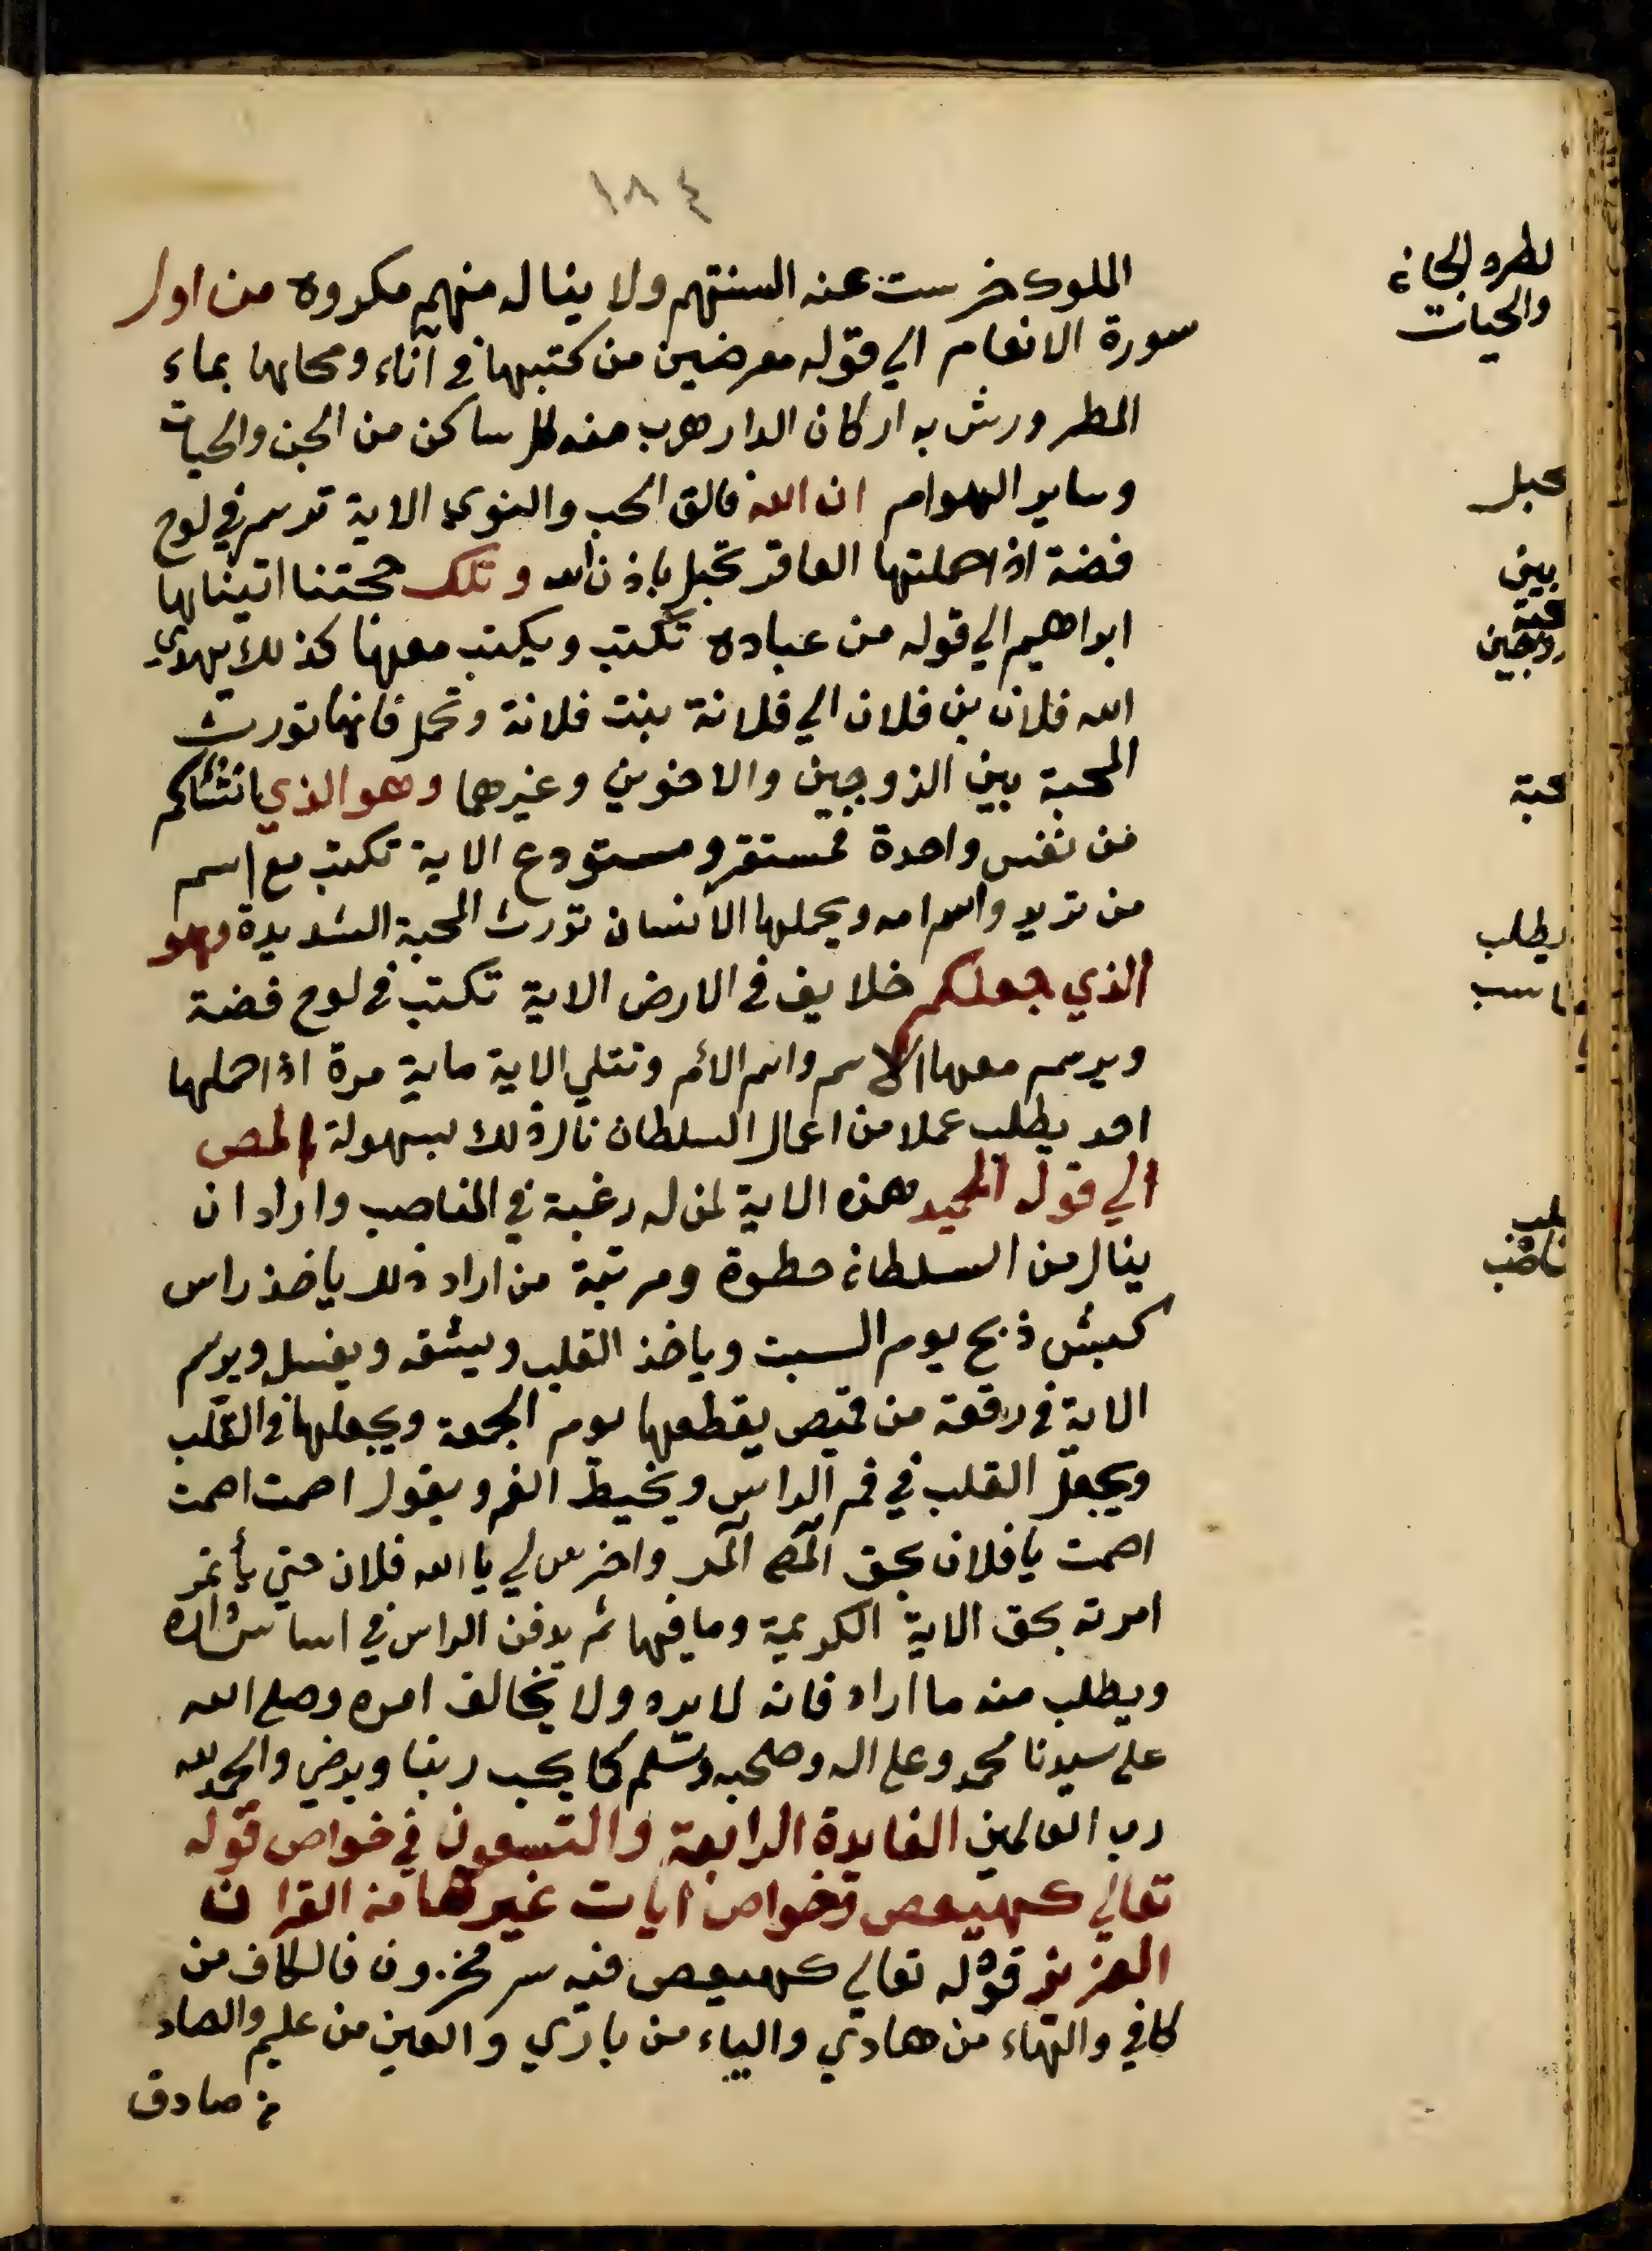 ١٨٤
الملوك خرست عنه السنتهم ولا ينال منهم مكروه من اول
سورة الانعام الي قوله معرضين من كتبها في آناء ومحاها بماء
المطر ورش به اركان الدار هرب منه كل ساكن من الجن والحيات
وساير الهوام ان الله فالق الحب والنوي الاية ترسم في لوح
فضة اذا حملتها العاقر تحبل باذن الله وتلك حجتنا اتيناها
ابراهيم الي قوله من عباده تكتب ويكتب معها كذلك يهدي
الله فلان بن فلان الي فلانة بنت فلانة وتحمل فانها تورث
المحبة بين الزوجين والاخوين وغيرهما وهو الذي انشاكم
من نفس واحدة فمستقر ومستودع الاية تكتب مع اسم
من تريد واسم امه ويحملها الانسان تورث المحبة الشديدة وهو
الذي جعلكم خلايف في الارض الاية تكتب في لوح فضة
ويرسم معها الاسم واسم الأم وتتلي الاية ماية مرة اذا حملها
احد يطلب عملا من اعمال السلطان نال ذلك بسهولة المص
الي قوله المجيد هذه الاية لمن له رغبة في المناصب واراد ان
ينال من السلطان حظوة ومرتبة من اراد ذلك ياخذ راس
كبش ذبح يوم السبت وياخذ القلب ويشقه ويغسل ويرسم
الاية في رقعة من قميص يقطعها يوم الجمعة ويجعلها في القلب
ويجعل القلب في فم الراس ويخيط الفم ويقول اصمت اصمت
اصمت يا فلان بحق المص المر واخرس لي يا الله فلان حتي يأتمر
امرته بحق الاية الكريمة وما فيها ثم يدفن الراس في اساس داره
ويطلب منه ما اراد فانه لا يرده ولا يخالف امره وصلى الله
على سيدنا محمد وعلى اله وصحبه وسلم كما يحب ربنا ويرضي والحمد لله
رب العالمين الفايدة الرابعة والتسعون في خواص قوله
تعالي كهيعص وخواص ايات غيرها من القران
العزيز قوله تعالي كهيعص فيه سر مخزون فالكاف من
كافي والهاء من هادي والياء من باري والعين من عليم والصاد
من صادق
لطرد الجان
والحيات
بين
يطلب